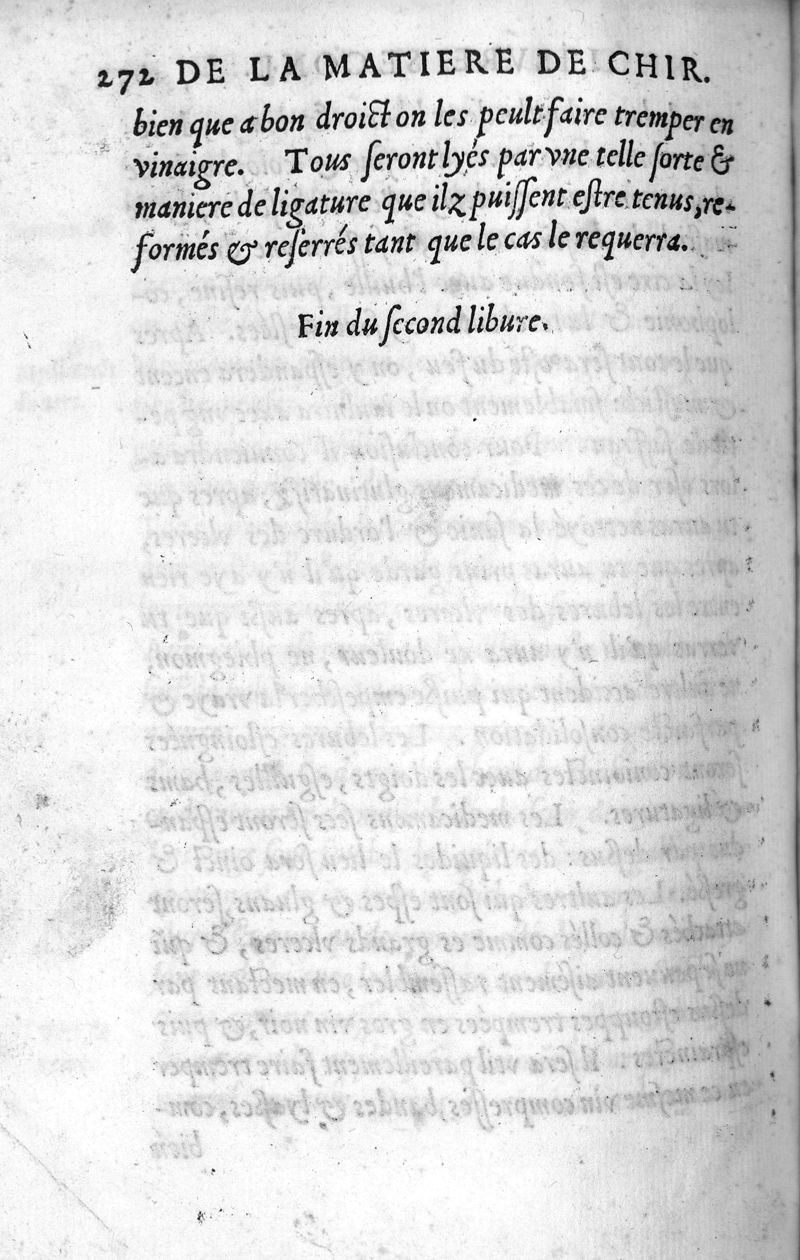 272 DE LA MATIERE DE CHIR.
bien que a bon droict on les peult faire tremper en
vinaigre. Tous ſeront lyés par vne telle ſorte &
maniere de ligature que ilz puiſſent eſtre tenus, re-
formés & reſerrés tant que le cas le requerra.
Fin du ſecond libure.